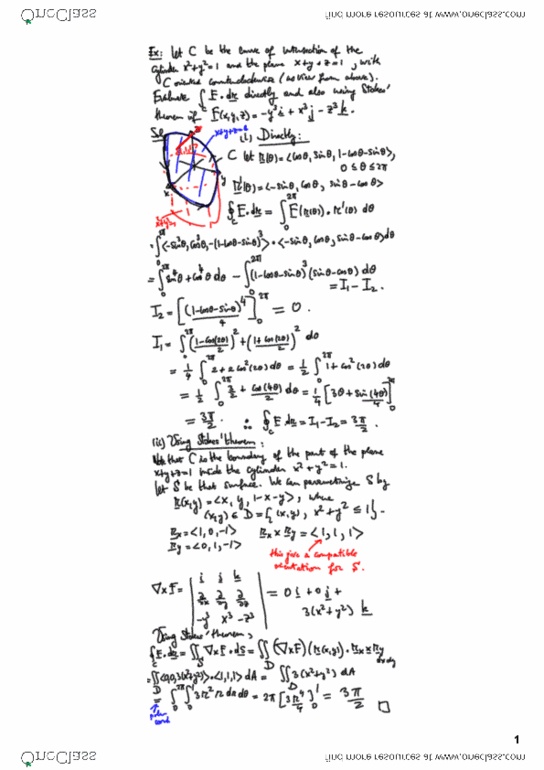 OneClass
find more resources at www.oneclass.com
Ex: Let C be the curve of intersection of the
cylinder x²+y²=1 and the plane x+y+z=1, with
C oriented counterclockwise (as view from above).
Evaluate ∫_C F·dr directly and also using Stokes'
theorem if F(x,y,z) = -y³i + x³j - z³k.
Sol
x+y+z=1
(i) Directly:
C let r(θ)=<cosθ, sinθ, 1-cosθ-sinθ>,
0≤θ≤2π
y
x
x²+y²=1
r'(θ)=<-sinθ, cosθ, sinθ-cosθ>
∮_C F·dr = ∫_0^{2π} F(r(θ))·r'(θ) dθ
=∫_0^{2π}<-sin³θ, cos³θ, -(1-cosθ-sinθ)³>·<-sinθ, cosθ, sinθ-cosθ>dθ
=∫_0^{2π} sin⁴θ+cos⁴θ dθ - ∫_0^{2π}(1-cosθ-sinθ)³(sinθ-cosθ)dθ
= I₁-I₂.
I₂=[(1-cosθ-sinθ)⁴/4]_0^{2π} = 0.
I₁=∫_0^{2π} ((1-cos(2θ))/2)²+((1+cos(2θ))/2)² dθ
= 1/4 ∫_0^{2π} 2+2cos²(2θ)dθ = 1/2 ∫_0^{2π} 1+cos²(2θ)dθ
= 1/2 ∫_0^{2π} 3/2 + cos(4θ)/2 dθ = 1/4 [3θ+sin(4θ)/4]_0^{2π}
= 3π/2. ∴ ∮_C F·dr = I₁-I₂ = 3π/2.
(ii) Using Stokes' theorem:
Note that C is the boundary of the part of the plane
x+y+z=1 inside the cylinder x²+y²=1.
Let S be that surface. We can parametrize S by
r(x,y)=<x, y, 1-x-y>, where
(x,y)∈D={(x,y), x²+y²≤1}.
r_x=<1,0,-1> r_x×r_y=<1,1,1>
r_y=<0,1,-1>
this give a compatible
orientation for S.
∇×F = | i j k |
| ∂/∂x ∂/∂y ∂/∂z | = 0i+0j+
| -y³ x³ -z³ | 3(x²+y²)k
Using Stokes' theorem,
∮_C F·dr=∬_S ∇×F·dS=∬_D(∇×F)(r(x,y))·r_x×r_y dxdy
=∬_D<0,0,3(x²+y²)>·<1,1,1>dA = ∬_D 3(x²+y²)dA
=∫_0^{2π}∫_0^1 3r² r dr dθ = 2π[3r⁴/4]_0^1 = 3π/2 □
polar
coord
1
OneClass
find more resources at www.oneclass.com